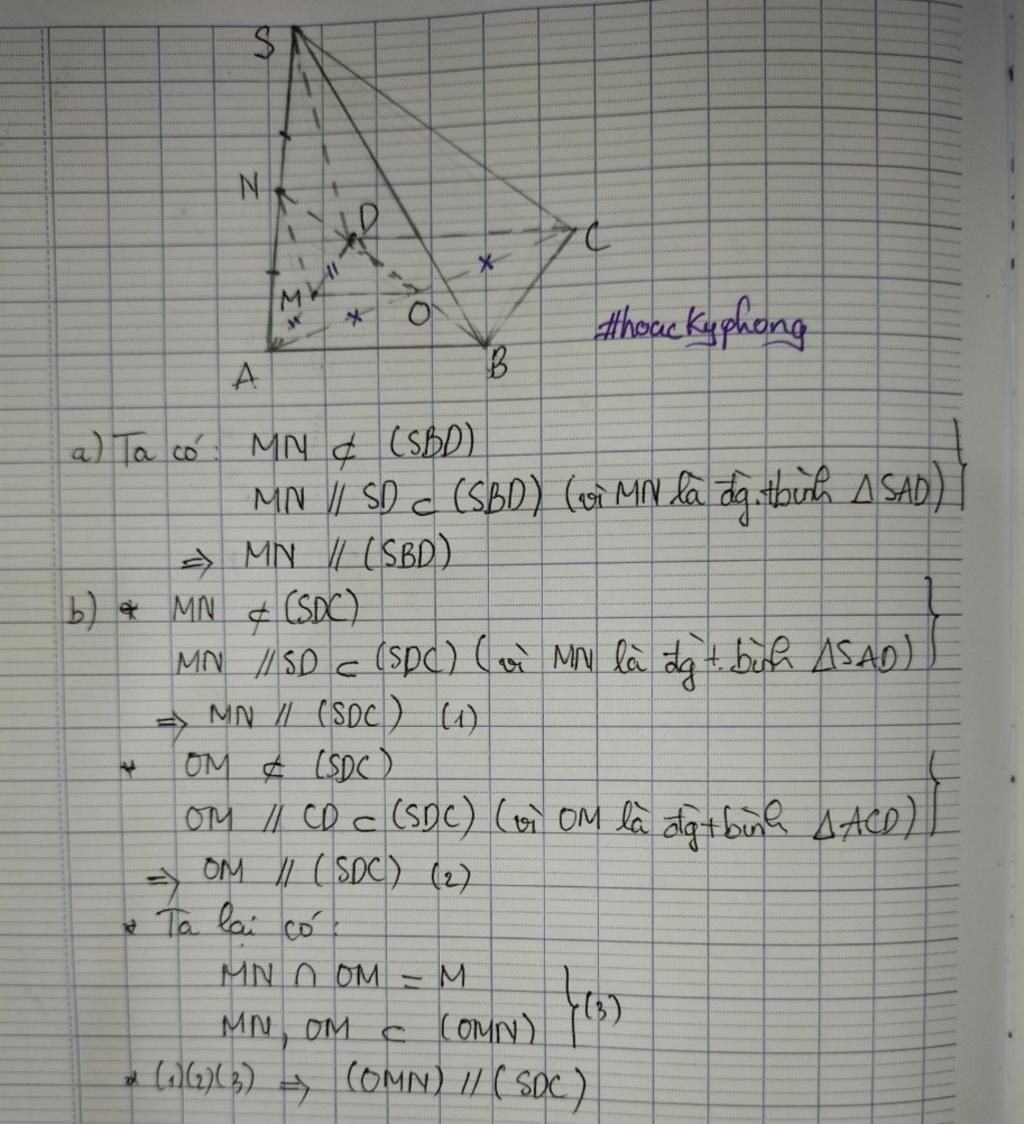 S
N
D
C
M
O
#hoackyphong
A
B
a) Ta có: MN ⊄ (SBD)
MN // SD ⊂ (SBD) (vì MN là đg.tbình ΔSAD)
⇒ MN // (SBD)
b) * MN ⊄ (SDC)
MN // SD ⊂ (SDC) (vì MN là đg t.bình ΔSAD)
⇒ MN // (SDC) (1)
* OM ⊄ (SDC)
OM // CD ⊂ (SDC) (vì OM là đg tbình ΔACD)
⇒ OM // (SDC) (2)
* Ta lại có:
MN ∩ OM = M
MN, OM ⊂ (OMN) } (3)
* (1)(2)(3) ⇒ (OMN) // (SDC)